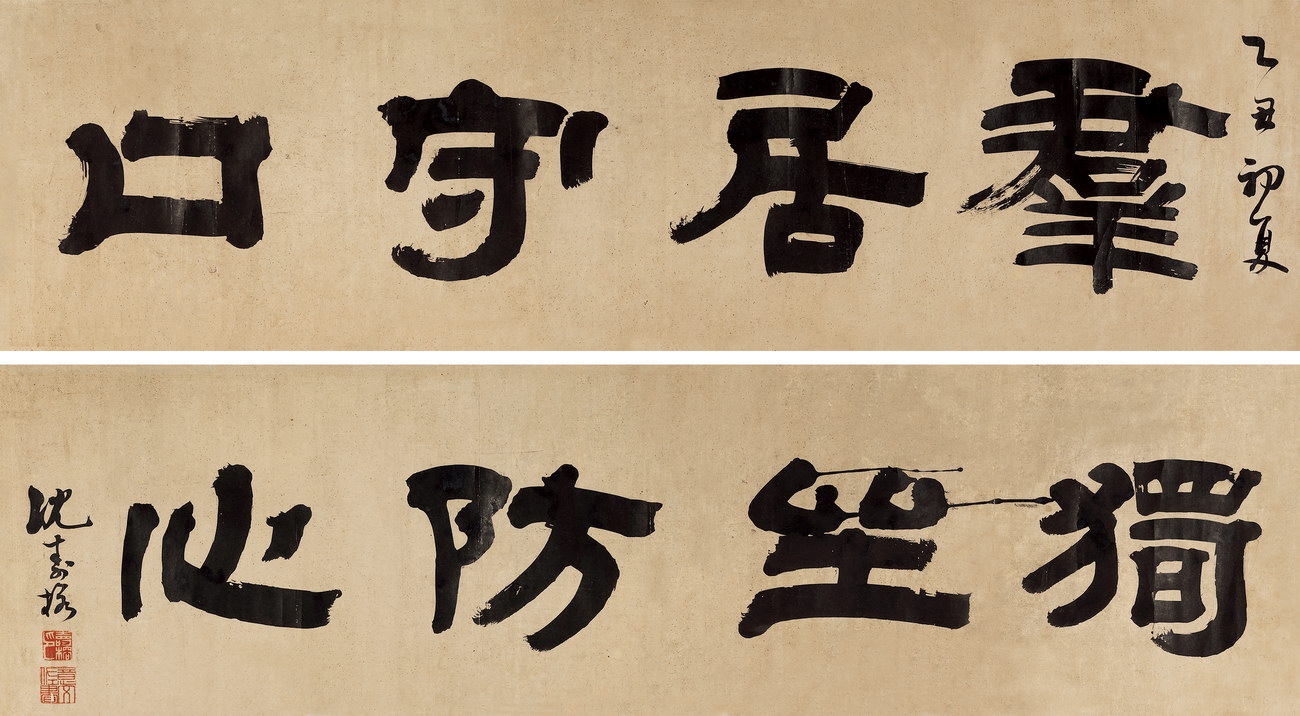 乙丑初夏
羣居守口
獨坐防心
沈壽榕